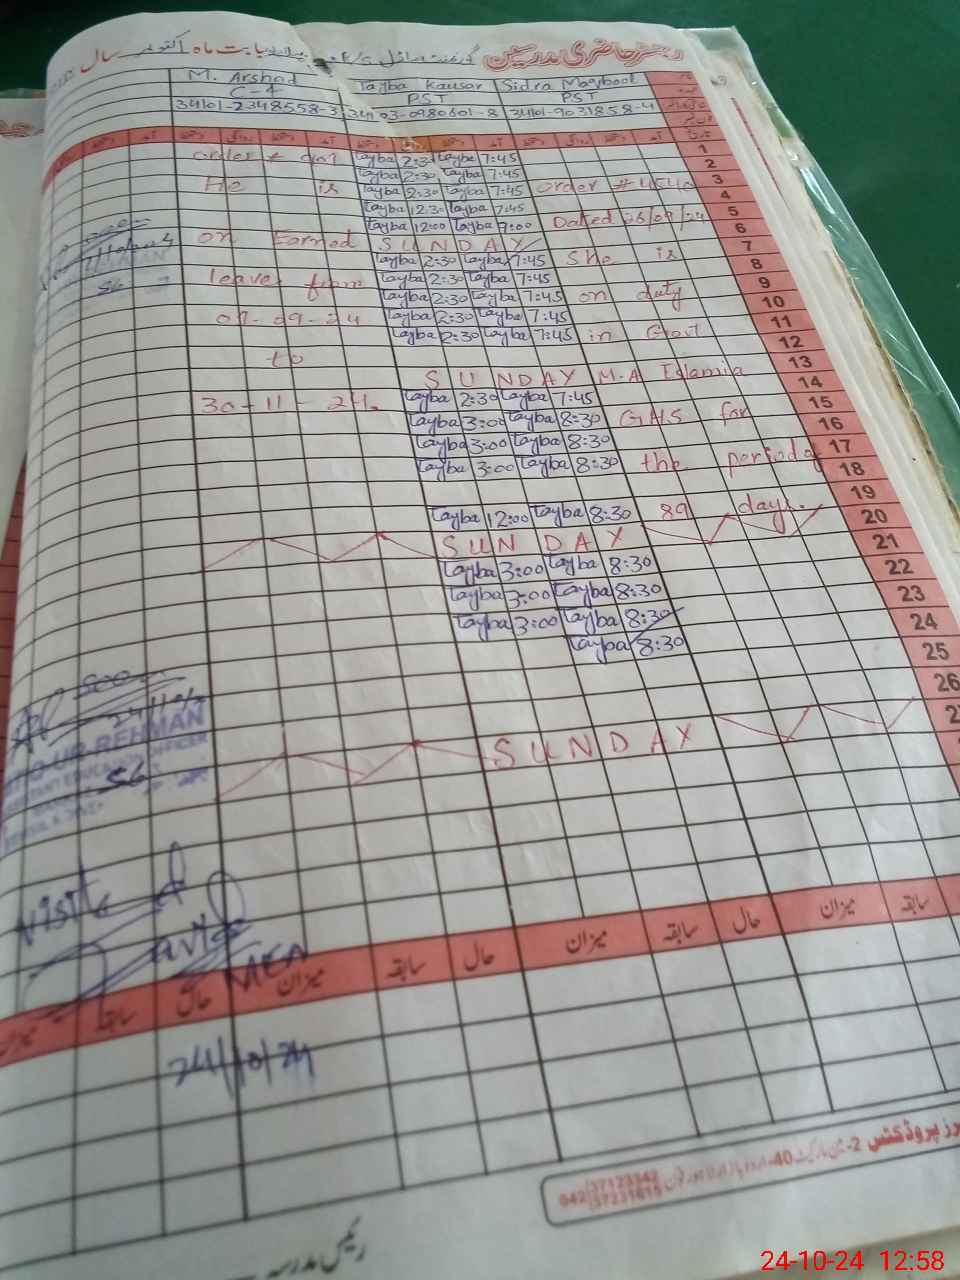 رجسٹر حاضری مدرسین
بابت ماہ اکتوبر سال
M. Arshad Tayba Kausar Sidra Maqbool
C-4 PST PST
34101-2348558-3 34103-0980601-8 34101-9031858-4
1
Tayba 2:30 Tayba 7:45 2
Tayba 2:30 Tayba 7:45 3
He is Tayba 2:30 Tayba 7:45 Order # 4540 4
Tayba 12:30 Tayba 7:45 5
Tayba 12:00 Tayba 9:00 Dated 26/09/24 6
on Earned SUNDAY 7
Tayba 2:30 Tayba 7:45 She is 8
leave from Tayba 2:30 Tayba 7:45 9
Tayba 2:30 Tayba 7:45 on duty 10
07-09-24 Tayba 2:30 Tayba 7:45 11
Tayba 2:30 Tayba 7:45 in Govt 12
to 13
SUNDAY M.A Islamia 14
30-11-24. Tayba 2:30 Tayba 7:45 15
Tayba 3:00 Tayba 8:30 G.H.S for 16
Tayba 3:00 Tayba 8:30 17
Tayba 3:00 Tayba 8:30 the period of 18
19
Tayba 12:00 Tayba 8:30 89 days. 20
SUNDAY 21
Tayba 3:00 Tayba 8:30 22
Tayba 3:00 Tayba 8:30 23
Tayba 3:00 Tayba 8:30 24
Tayba 8:30 25
26
SUNDAY
UR-REHMAN
EDUCATION OFFICER
56
visited
MEA
میزان سابقہ حال میزان سابقہ حال میزان سابقہ حال میزان
24/10/24
رئیس مدرسہ
24-10-24 12:58